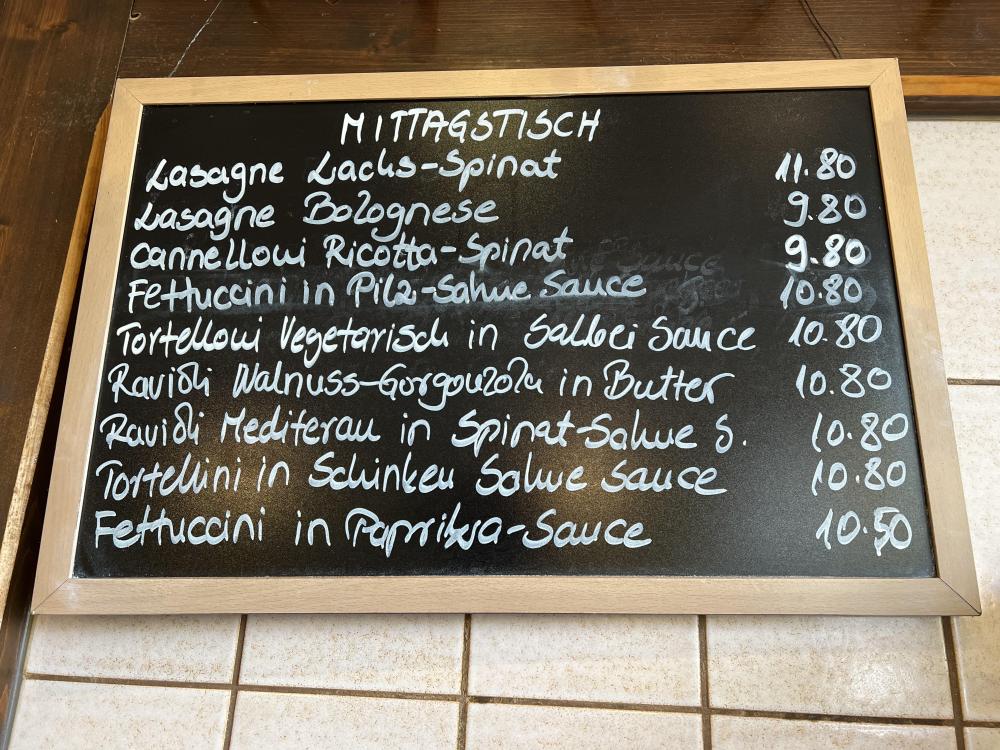 MITTAGSTISCH
Lasagne Lachs-Spinat 11.80
Lasagne Bolognese 9.80
Cannelloni Ricotta-Spinat 9.80
Fettuccini in Pilz-Sahne Sauce 10.80
Tortelloni Vegetarisch in Salbei Sauce 10.80
Ravioli Walnuss-Gorgonzola in Butter 10.80
Ravioli Mediteran in Spinat-Sahne S. 10.80
Tortellini in Schinken Sahne Sauce 10.80
Fettuccini in Paprika-Sauce 10.50